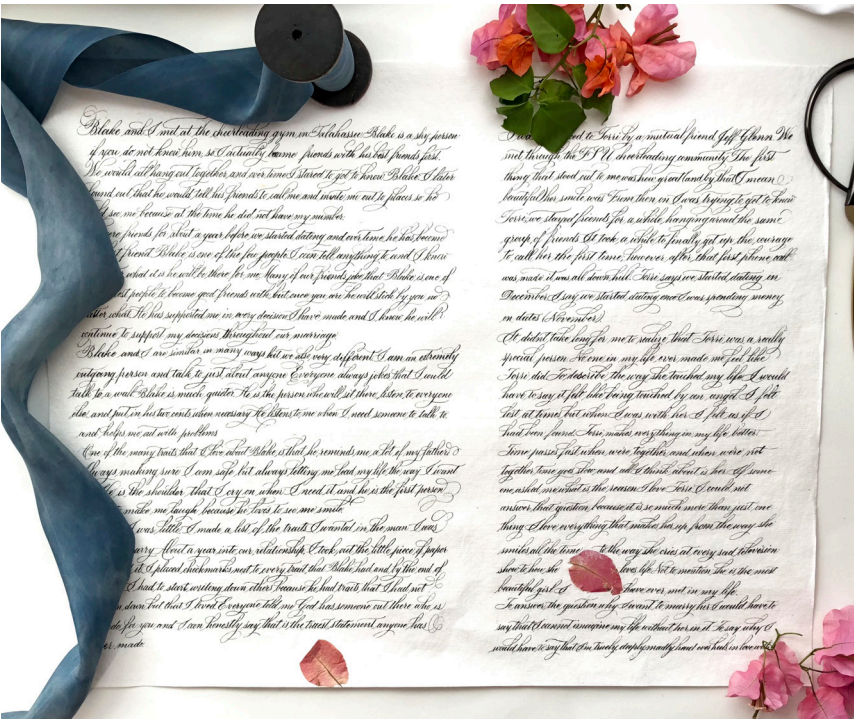 Blake and I met at the cheerleading gym in Talahassee Blake is a shy person
if you do not know him, so I actually became friends with his best friends first.
We would all hang out together, and over time I started to get to know Blake. I later
found out that he would tell his friends to call me and invite me out to places so he
could see me because at the time he did not have my number.
friends for about a year before we started dating and over time he has become
friend Blake is one of the few people I can tell anything to and I know
what it is he will be there for me. Many of our friends joke that Blake is one of
people to become good friends with, but once you are he will stick by you no
matter what. He has supported me in every decision I have made and I know he will
continue to support my decisions throughout our marriage
Blake and I are similar in many ways but we also very different I am an extremely
outgoing person and talk to just about anyone Everyone always jokes that I would
talk to a wall Blake is much quieter He is the person who will sit there, listen to everyone
else, and put in his two cents when necessary He listens to me when I need someone to talk to
and helps me out with problems
One of the many traits that I love about Blake, is that he reminds me a lot of my father
Always making sure I am safe, but always letting me lead my life the way I want
is the shoulder that I cry on when I need it and he is the first person
make me laugh, because he loves to see me smile
I was little I made a list of the traits I wanted in the man I was
marry About a year into our relationship I took out the little piece of paper
it I placed checkmarks next to every trait that Blake had and by the end of
I had to start writing down others because he had traits that I had not
down but that I loved Everyone told me God has someone out there who is
for you and I can honestly say that is the truest statement anyone has
made.
to Torri by a mutual friend Jeff Glenn We
met through the FSU cheerleading community The first
thing that stood out to me was how great and by that I mean
beautiful her smile was From then on I was trying to get to know
Torri, we stayed friends for a while, hanging around the same
group of friends It took a while to finally get up the courage
to call her the first time, however, after that first phone call
was made it was all down hill Torri says we started dating in
December I say we started dating once I was spending money
on dates (November)
It didn't take long for me to realize that Torri was a really
special person No one in my life ever made me feel like
Torri did To describe the way she touched my life I would
have to say it felt like being touched by an angel I felt
lost at times but when I was with her I felt as if I
had been found Torri makes everything in my life better
Time passes fast when were together and when were not
together time goes slow and all I think about is her If some
one asked me what is the reason I love Torri I could not
answer that question because it is so much more than just one
thing I love everything that makes her up from the way she
smiles all the time to the way she cries at every sad television
show to how she loves life Not to mention she is the most
beautiful girl I have ever met in my life.
To answer the question why I want to marry her I would have to
say that I cannot imagine my life without her in it To say why I
would have to say that I'm truely, deeply, madly, head over heels in love